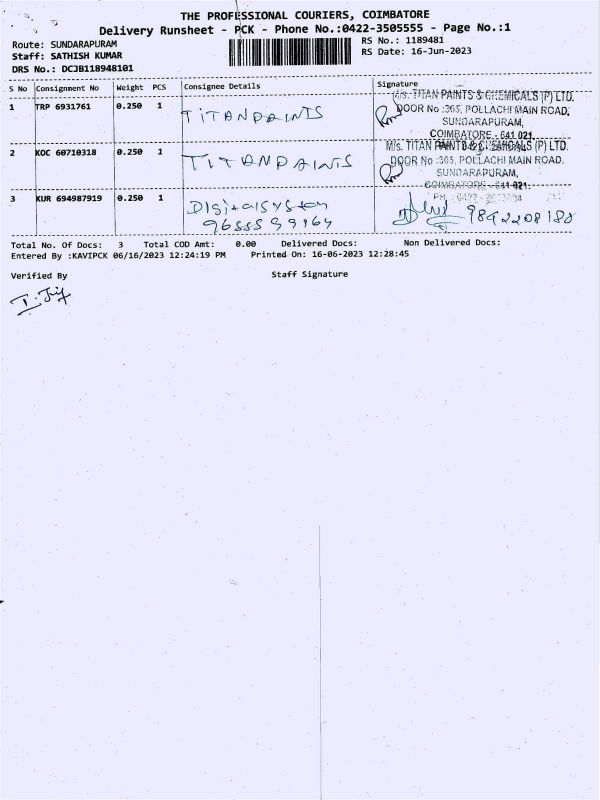 THE PROFESSIONAL COURIERS, COIMBATORE
Delivery Runsheet - PCK - Phone No.:0422-3505555 - Page No.:1
Route: SUNDARAPURAM
RS No.: 1189481
Staff: SATHISH KUMAR
RS Date: 16-Jun-2023
DRS No.: DCJB118948101
S No Consignment No Weight PCS Consignee Details Signature
1 TRP 6931761 0.250 1 TITANPAINTS
M/s. TITAN PAINTS & CHEMICALS (P) LTD.
DOOR No :365, POLLACHI MAIN ROAD,
SUNDARAPURAM,
COIMBATORE - 641 021.
2 KOC 60710318 0.250 1 TITANPAINTS
M/s. TITAN PAINTS & CHEMICALS (P) LTD.
DOOR No :365, POLLACHI MAIN ROAD.
SUNDARAPURAM,
COIMBATORE - 641 021.
3 KUR 694987919 0.250 1 Digitalsystem
PH : 0422 -
9842208188
Total No. Of Docs: 3 Total COD Amt: 0.00 Delivered Docs: Non Delivered Docs:
Entered By :KAVIPCK 06/16/2023 12:24:19 PM Printed On: 16-06-2023 12:28:45
Verified By Staff Signature